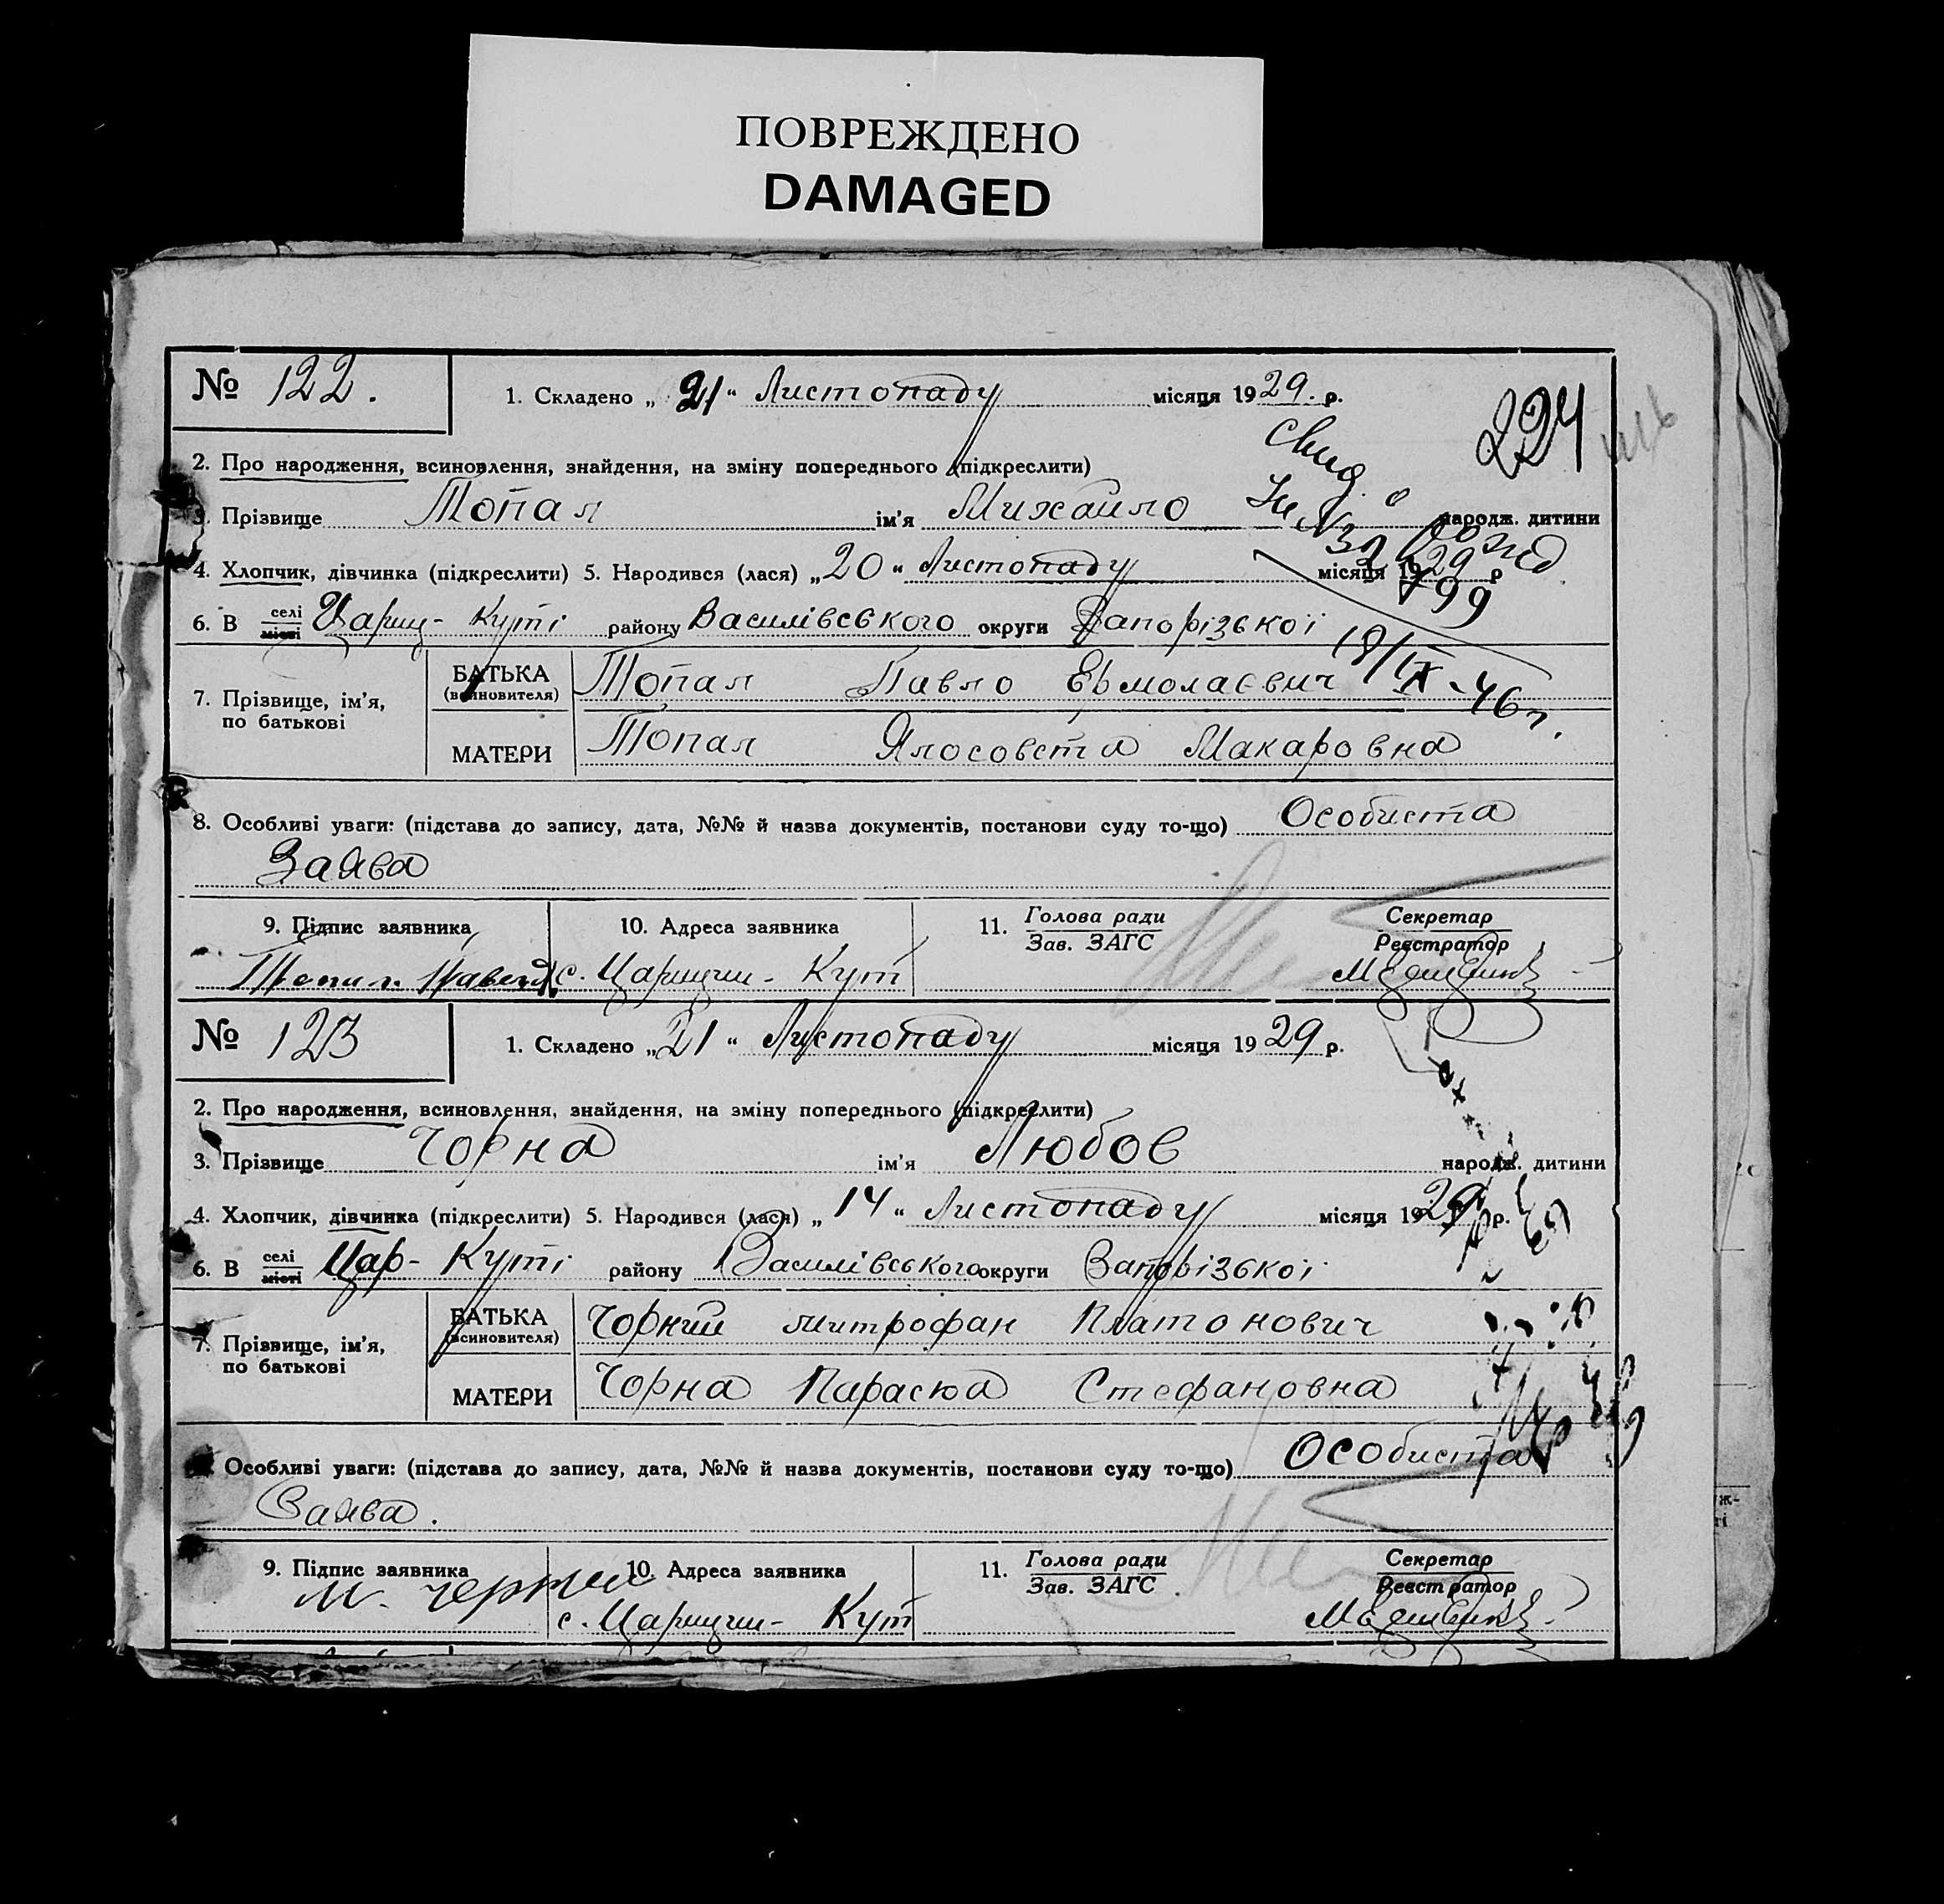 ПОВРЕЖДЕНО
DAMAGED
№ 122.
1. Складено „21“ Листопаду місяця 1929. р.
224
2. Про народження, всиновлення, знайдення, на зміну попереднього (підкреслити)
3. Прізвище Топал ім'я Михайло народж. дитини
4. Хлопчик, дівчинка (підкреслити) 5. Народився (лася) „20“ Листопаду місяця 1929 р
799
6. В селі місті Цариц-Куті району Василівського округи Запорізької
18/IX-46 г.
7. Прізвище, ім'я, по батькові
БАТЬКА (всиновителя) Топал Павло Ермолаєвич
МАТЕРИ Топал Ялосовєта Макаровна
8. Особливі уваги: (підстава до запису, дата, №№ й назва документів, постанови суду то-що) Особиста
Заява
9. Підпис заявника 10. Адреса заявника 11. Голова ради Зав. ЗАГС Секретар Реєстратор
Топал с. Царицин-Кут
№ 123
1. Складено „21“ Листопаду місяця 1929 р.
2. Про народження, всиновлення, знайдення, на зміну попереднього (підкреслити)
3. Прізвище Чорна ім'я Любов народж. дитини
4. Хлопчик, дівчинка (підкреслити) 5. Народився (лася) „14“ Листопаду місяця 1929 р.
6. В селі місті Цар-Куті району Василівського округи Запорізької
7. Прізвище, ім'я, по батькові
БАТЬКА (всиновителя) Чорний Митрофан Платонович
МАТЕРИ Чорна Параска Стефановна
8. Особливі уваги: (підстава до запису, дата, №№ й назва документів, постанови суду то-що) Особиста
Заява.
9. Підпис заявника 10. Адреса заявника 11. Голова ради Зав. ЗАГС Секретар Реєстратор
с. Царицин-Кут